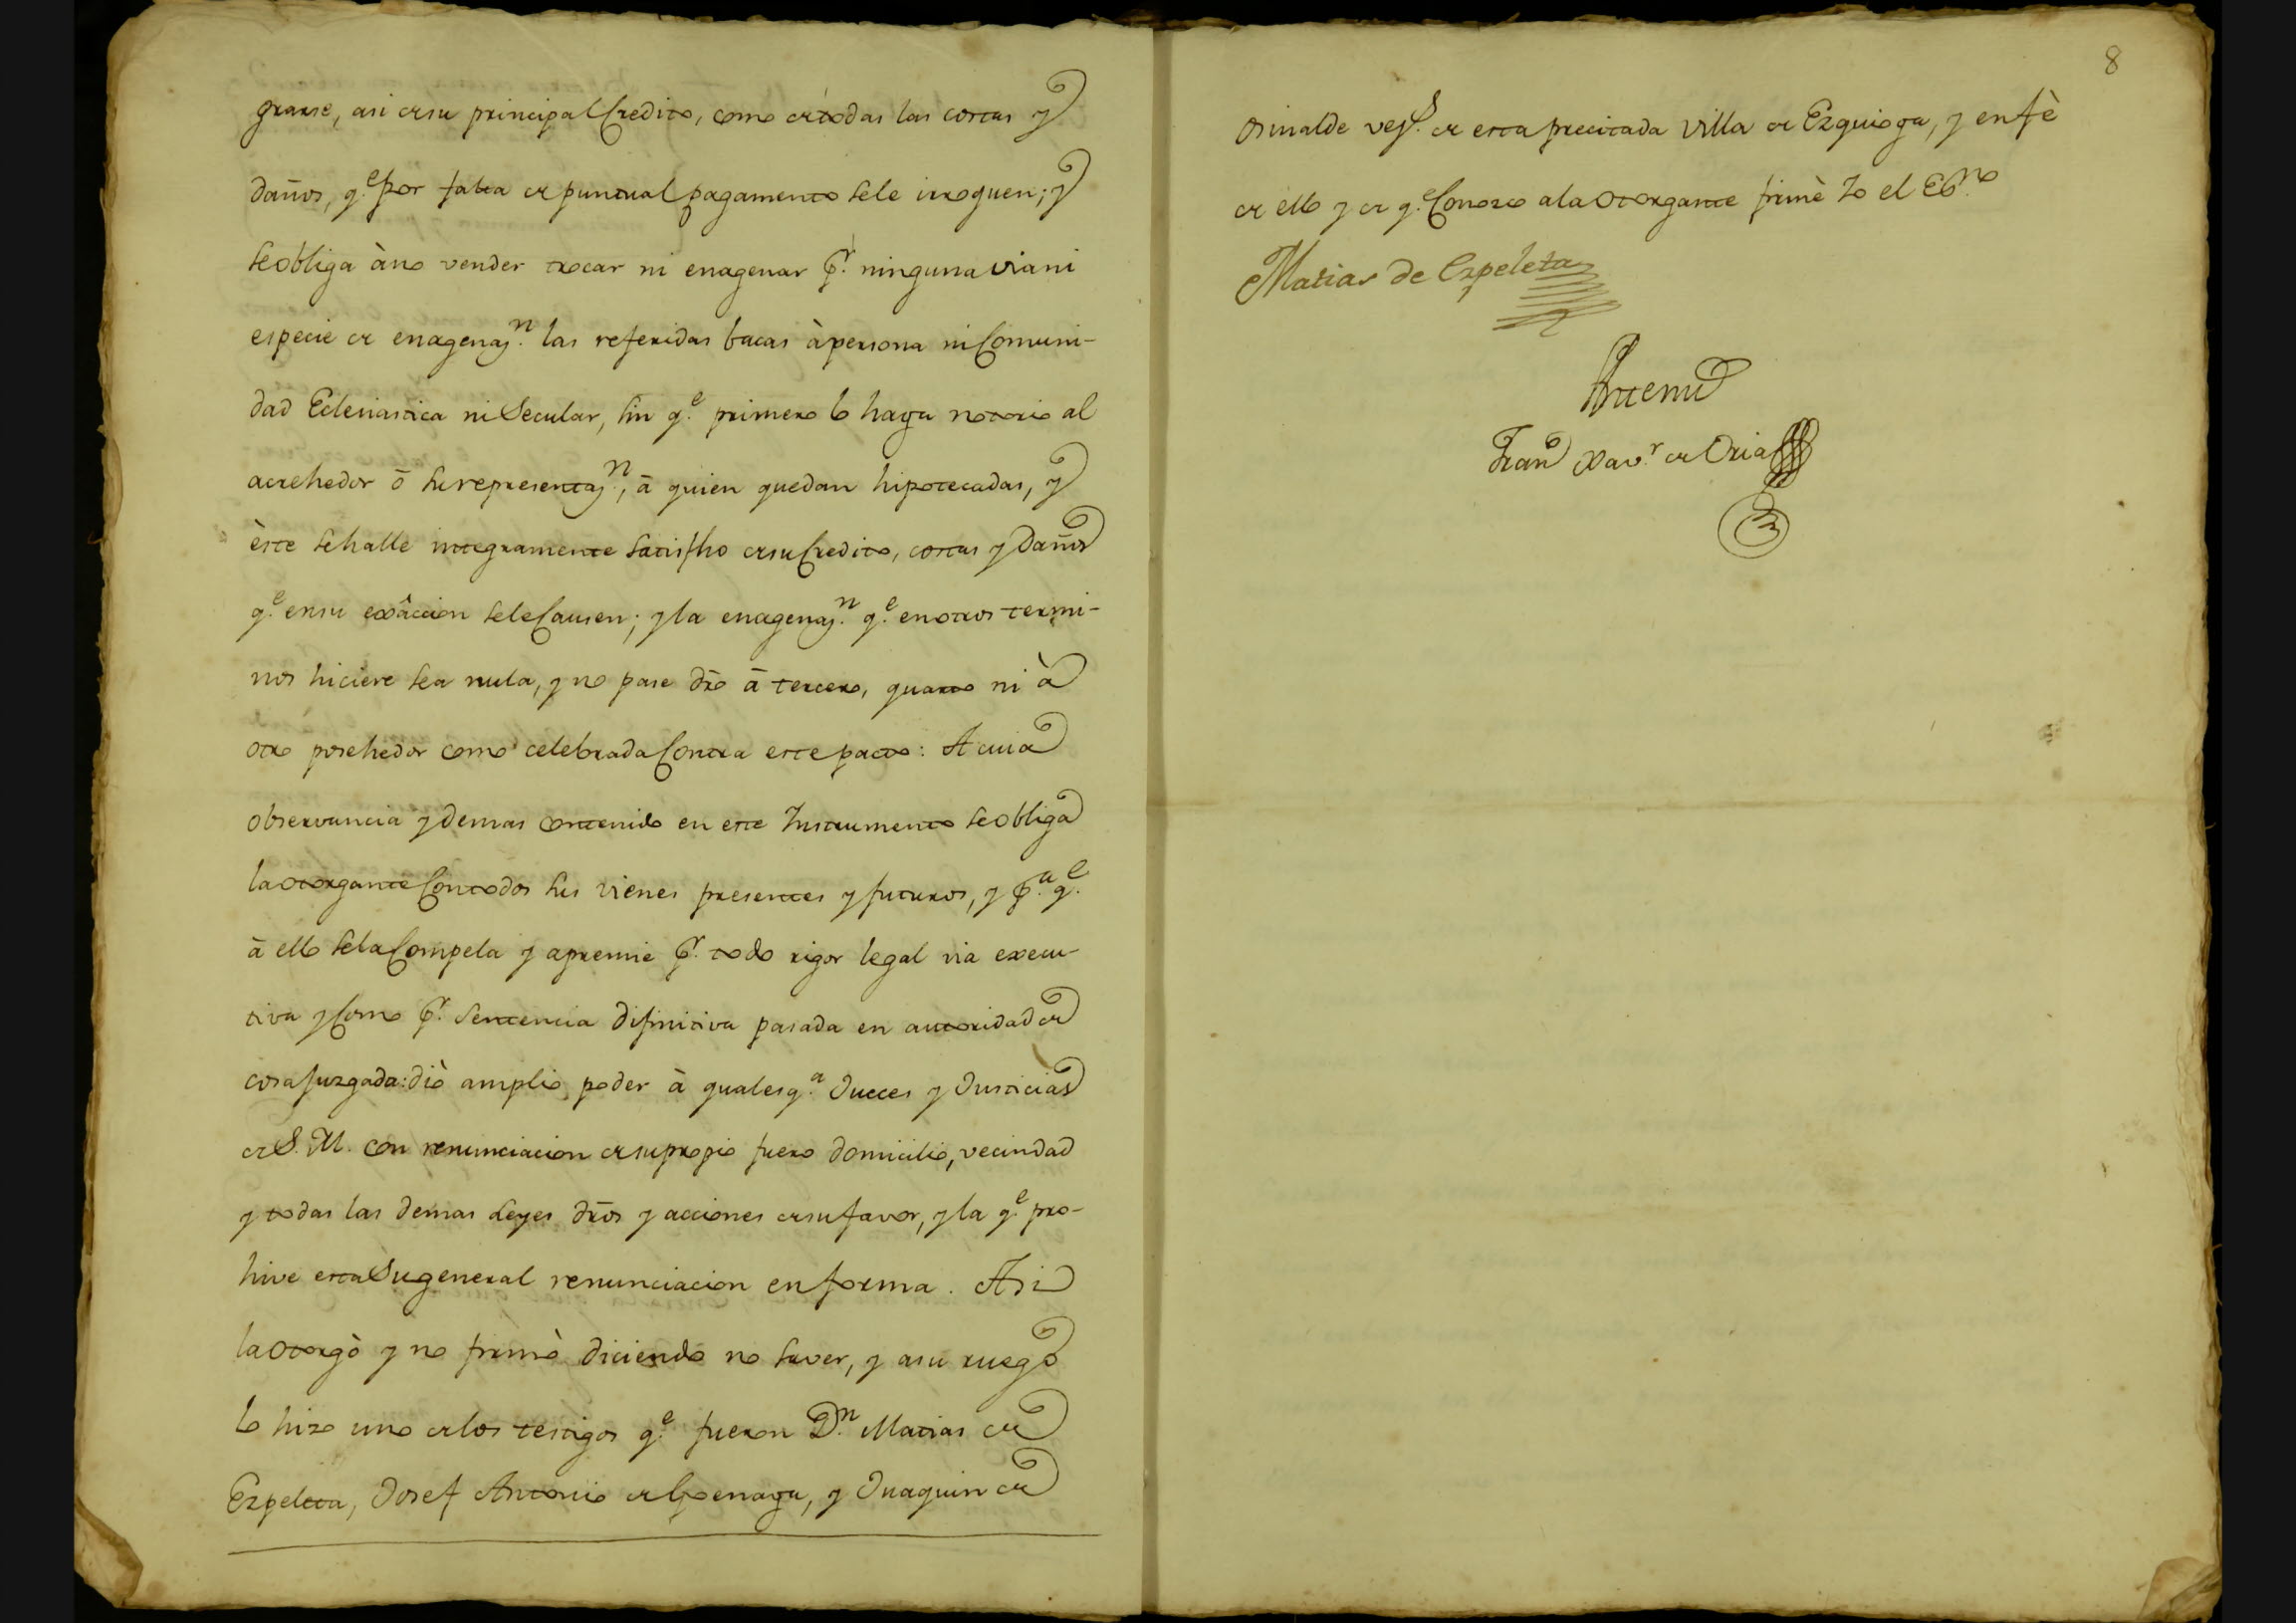 grarse, asi de su principal Credito, como de todas las costas y
daños, q.e por falta de puntual pagamento se le irroguen; y
se obliga à no vender trocar ni enagenar p.r ninguna via ni
especie de enagenaz.n las referidas bacas à persona ni Comuni-
dad Eclesiastica ni Secular, sin q.e primero lo haga notorio al
acrehedor ò su representaz.n, à quien quedan hipotecadas, y
èste se halle integramente satisfho de su Credito, costas y daños
q.e en su exâccion se le Causen; y la enagenaz.n q.e en otros termi-
nos hiciere sea nula, y no pase dr̃o à tercero, quarto ni à
otro posehedor como celebrada Contra este pacto: A cuia
observancia y demas contenido en este Instrumento se obliga
la otorgante Con todos sus vienes presentes y futuros, y p.a q.e
à ello se la Compela y apremie p.r todo rigor legal via execu-
tiva y Como p.r Sentencia difinitiva pasada en autoridad de
cosa Juzgada: diò amplio poder à qualesq.a Jueces y Justicias
de S. M. con renunciacion de su propio fuero domicilio, vecindad
y todas las demas Leyes dr̃os y acciones de su favor, y la q.e pro-
hive esta Su general renunciacion en forma. Asi
la otorgò y no firmò diciendo no saver, y a su ruego
lo hizo uno de los testigos q.e fueron D.n Matias de
Ezpeleta, Josef Antonio de Goenaga, y Juaquin de
8
Osinalde vez.s de esta precitada Villa de Ezquioga, y en fè
de ello y de q.e Conozco a la Otorgante firmè Yo el Ess.no
Matias de Ezpeleta
Ante mi
Fran.co Xav.r de Oria